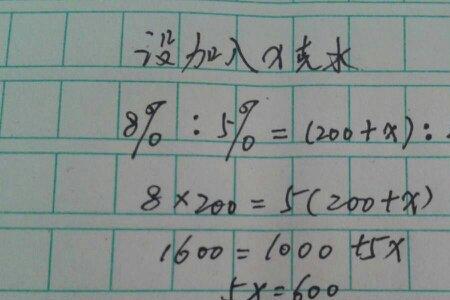 设加入x克水
8% : 5% = (200+x) :
8×200 = 5(200+x)
1600 = 1000 +5x
5x=600